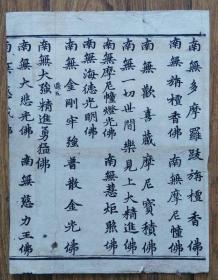 南無多摩羅跋旃檀香佛
南無旃檀香佛 南無摩尼幢佛
南無歡喜藏摩尼寶積佛
南無一切世間樂見上大精進佛
南無摩尼幢燈光佛 南無慧炬照佛
南無海德光明佛
南無金剛牢強普散金光佛
南無大強精進勇猛佛
南無大悲光佛 南無慈力王佛